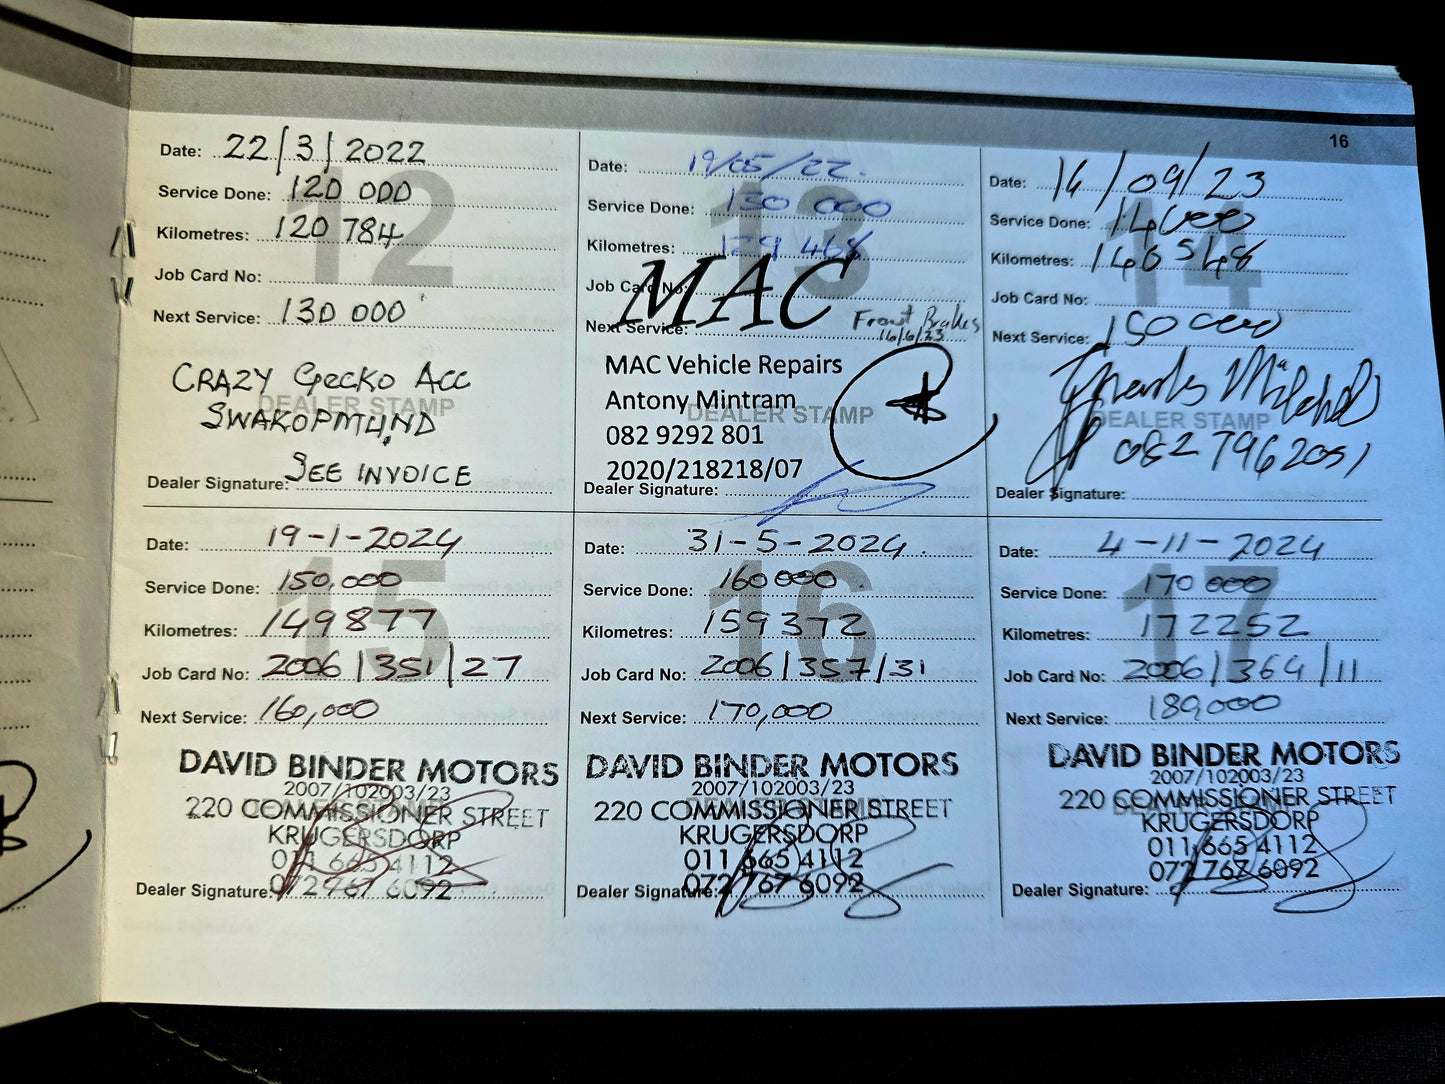 16
Date: 22/3/2022
Service Done: 120 000
Kilometres: 120 784
Job Card No:
Next Service: 130 000
12
CRAZY GECKO ACC
SWAKOPMUND
DEALER STAMP
SEE INVOICE
Dealer Signature:
Date: 19/05/22.
Service Done: 130 000
Kilometres: 129 468
Job Card No:
Next Service:
13
MAC
Front Brakes
16/6/23
MAC Vehicle Repairs
Antony Mintram
DEALER STAMP
082 9292 801
2020/218218/07
Dealer Signature:
Date: 14/09/23
Service Done: 14000
Kilometres: 140548
Job Card No:
Next Service: 150000
14
DEALER STAMP
082 7962051
Dealer Signature:
Date: 19-1-2024
Service Done: 150,000
Kilometres: 149877
Job Card No: 2006/351/27
Next Service: 160,000
15
DAVID BINDER MOTORS
2007/102003/23
220 COMMISSIONER STREET
KRUGERSDORP
011 665 4112
072 767 6092
Dealer Signature:
Date: 31-5-2024.
Service Done: 160000.
Kilometres: 159372
Job Card No: 2006/357/31
Next Service: 170,000
16
DAVID BINDER MOTORS
2007/102003/23
220 COMMISSIONER STREET
KRUGERSDORP
011 665 4112
072 767 6092
Dealer Signature:
Date: 4-11-2024
Service Done: 170000
Kilometres: 172252
Job Card No: 2006/364/11
Next Service: 189,000
17
DAVID BINDER MOTORS
2007/102003/23
220 COMMISSIONER STREET
KRUGERSDORP
011 665 4112
072 767 6092
Dealer Signature: